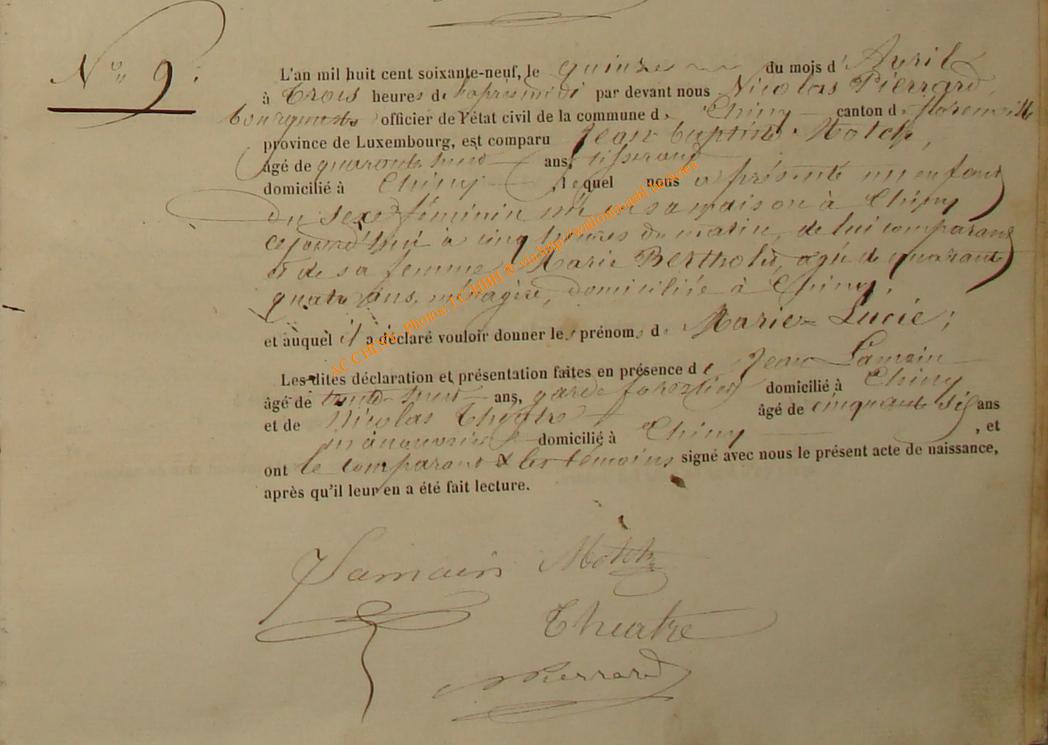 N° 9.
L'an mil huit cent soixante-neuf, le quinze du mois d'Avril
à trois heures de l'après midi par devant nous Nicolas Pierrard,
bourgmestre officier de l'état civil de la commune de Chiny canton de florenville
province de Luxembourg, est comparu Jean Baptiste
âgé de quarante neuf ans, tisserand
domicilié à Chiny lequel nous a présenté un enfant
du sexe féminin né en sa maison à Chiny
cejourd'hui à cinq heures du matin, de lui comparant
et de sa femme Marie agée de quarante
quatre ans, ménagère, domiciliée à Chiny,
et auquel il a déclaré vouloir donner les prénoms de Marie Lucie;
Les dites déclaration et présentation faites en présence de Jean Lamain
âgé de ans, garde forestier domicilié à Chiny
et de Nicolas Théatre âgé de cinquante six ans
manouvrier domicilié à Chiny , et
ont le comparant & les témoins signé avec nous le présent acte de naissance,
après qu'il leur en a été fait lecture.
Lamain
Theatre
Pierrard